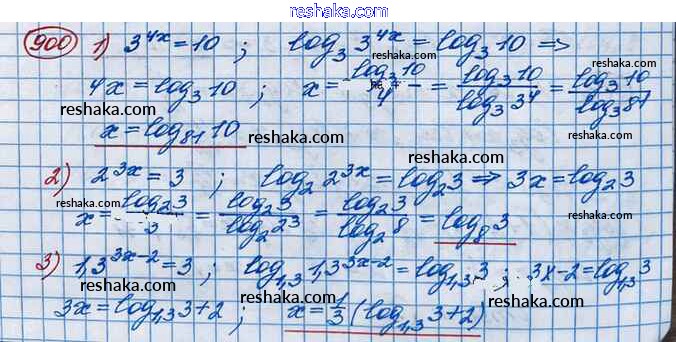 reshaka.com
900 1) 3^{4x} = 10 ; log_3 3^{4x} = log_3 10 =>
4x = log_3 10 ; x = \frac{log_3 10}{4} = \frac{log_3 10}{log_3 3^4} = \frac{log_3 10}{log_3 81}
x = log_{81} 10
2) 2^{3x} = 3 ; log_2 2^{3x} = log_2 3 => 3x = log_2 3
x = \frac{log_2 3}{3} = \frac{log_2 3}{log_2 2^3} = \frac{log_2 3}{log_2 8} = log_8 3
3) 1,3^{3x-2} = 3 ; log_{1,3} 1,3^{3x-2} = log_{1,3} 3 ; 3x-2 = log_{1,3} 3
3x = log_{1,3} 3+2 ; x = \frac{1}{3} (log_{1,3} 3+2)
reshaka.com
reshaka.com
reshaka.com
reshaka.com
reshaka.com
reshaka.com
reshaka.com
reshaka.com
reshaka.com
reshaka.com
reshaka.com
reshaka.com